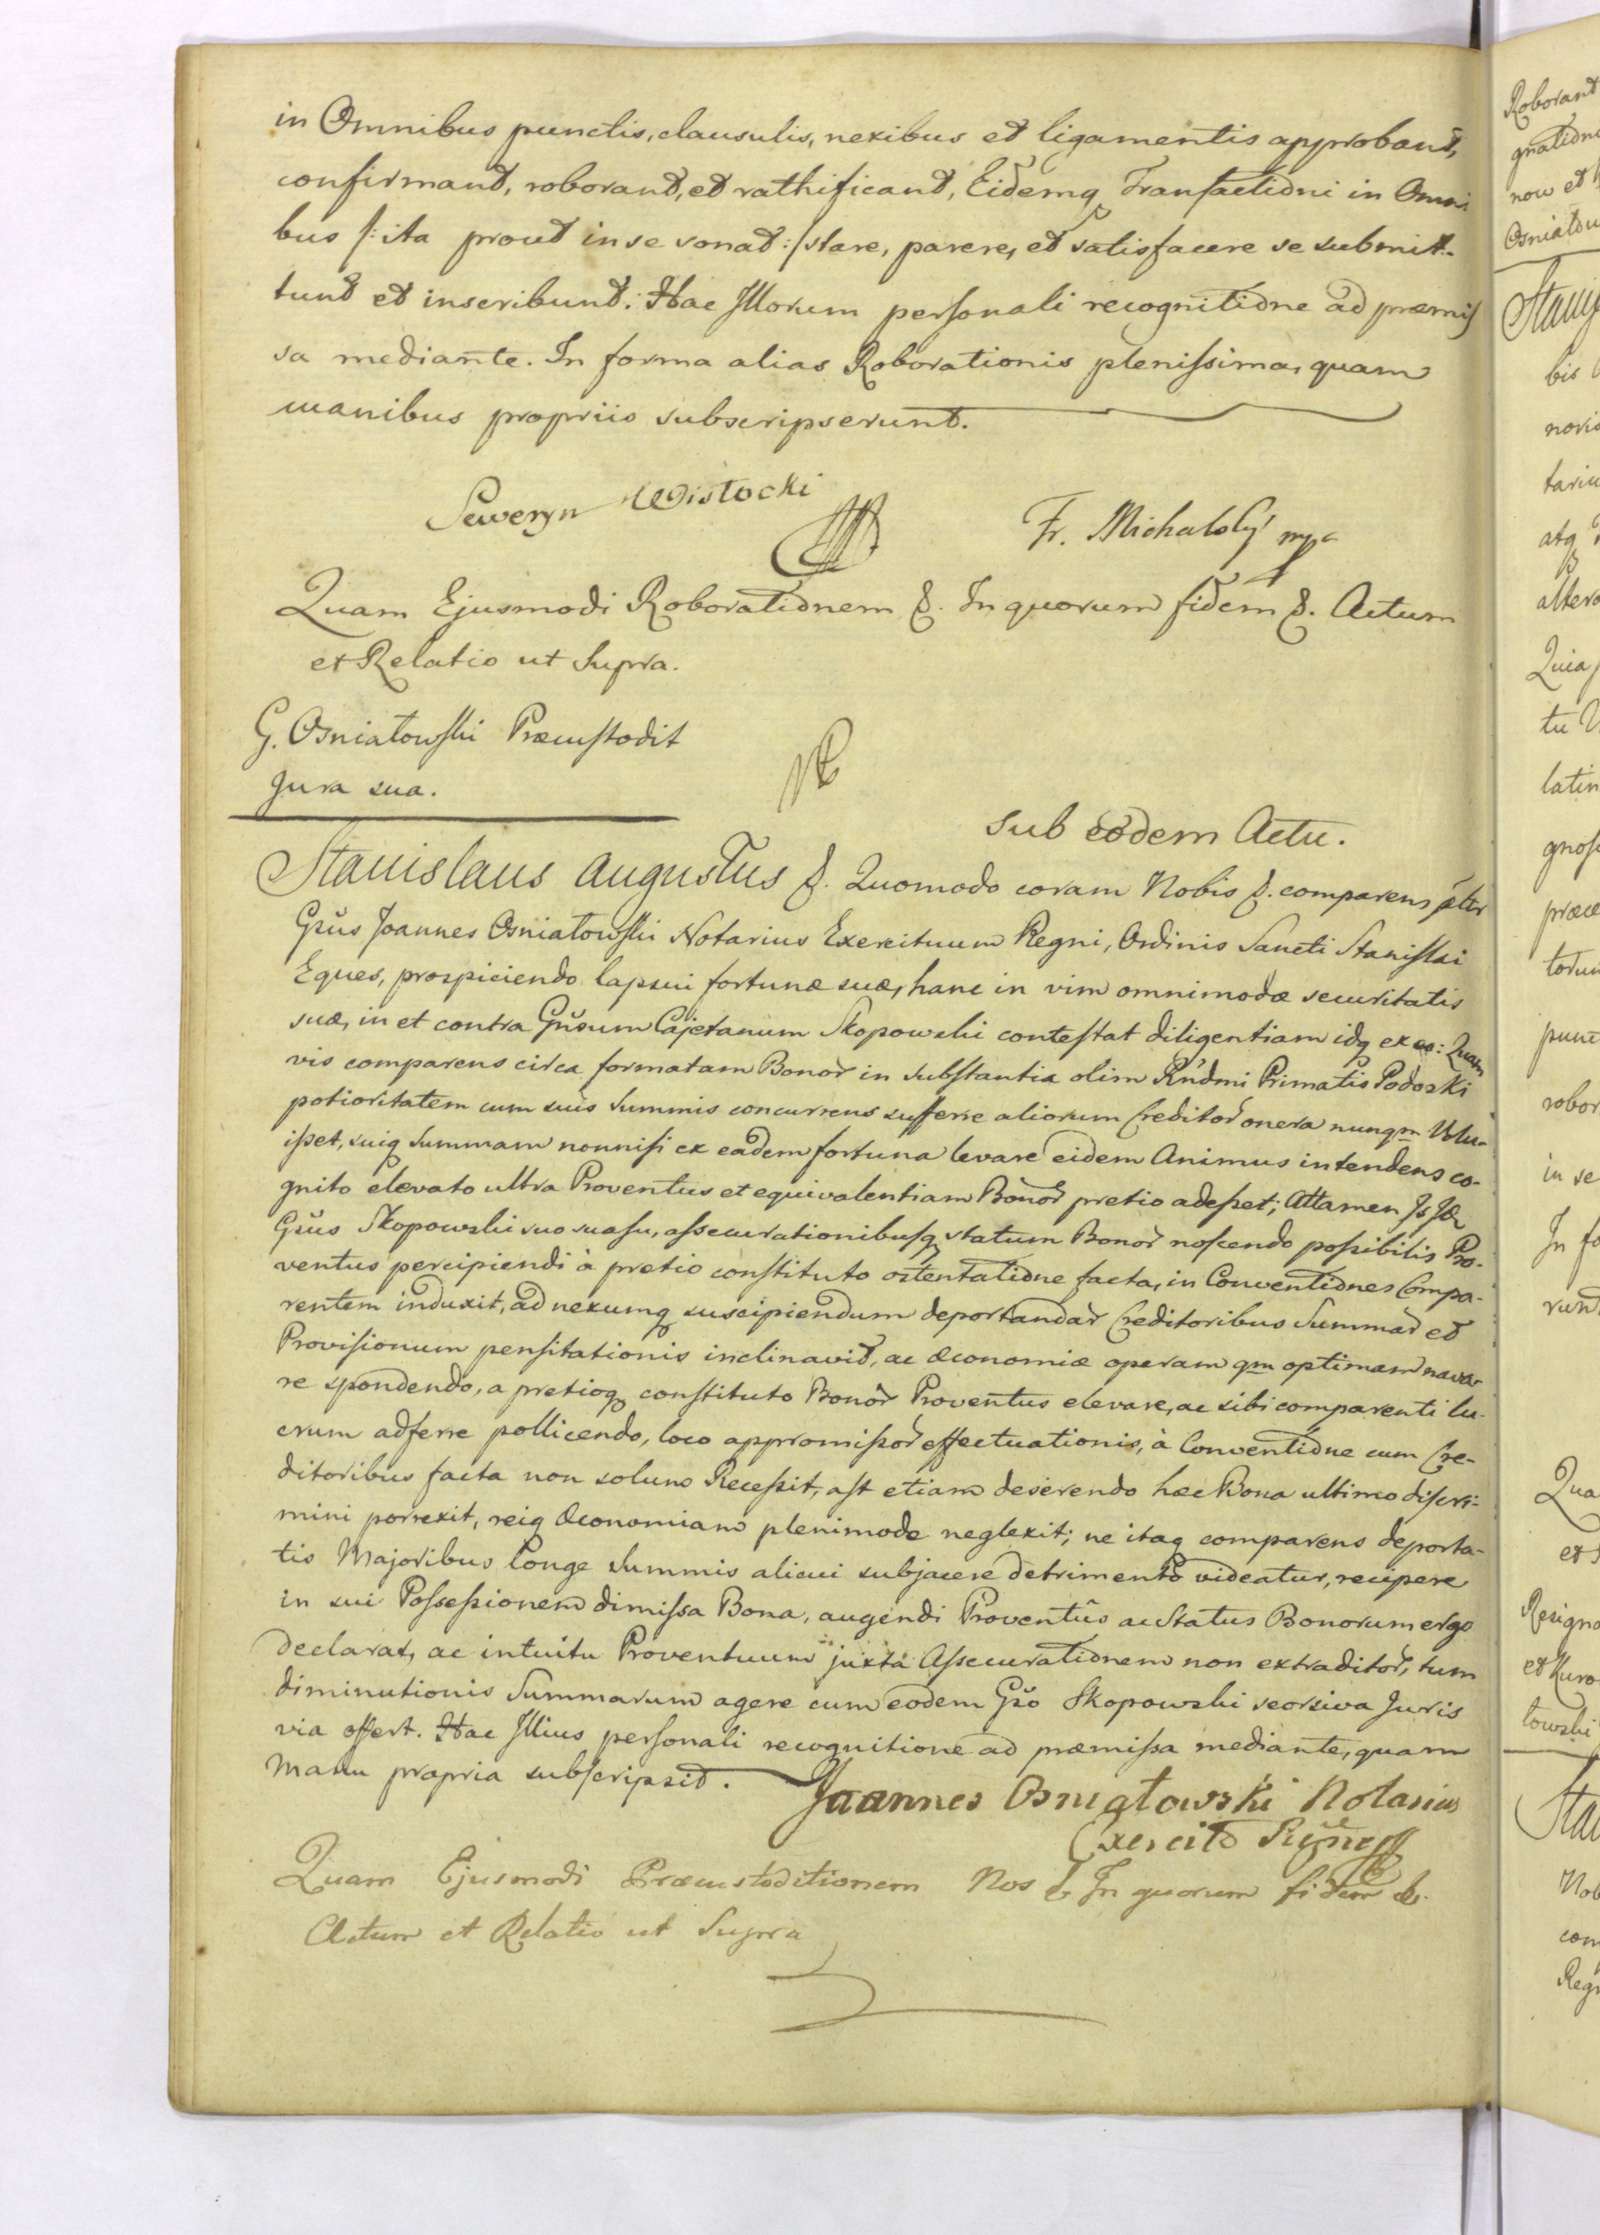 in Omnibus punctis, clausulis, nexibus et ligamentis approbant,
confirmant, roborant, et rathificant, Eidemq Transactioni in Omni
bus /: ita prout in se sonat :/ stare, parere, et satisfacere se submit-
tunt et inscribunt. Hac Illorum personali recognitione ad præmis
sa mediante. In forma alias Roborationis plenissima, quam
manibus propriis subscripserunt.
Seweryn Wisłocki
Fr. Michalsky mp
Quam Ejusmodi Roborationem &. In quorum fidem &. Actum
et Relatio ut Supra.
G. Osniatowski Præcustodit
Jura sua.
Sub eodem Actu.
Stanislaus Augustus &. Quomodo coram Nobis &. comparens pltr
Gsus Joannes Osniatowski Notarius Exercituum Regni, Ordinis Sancti Stanislai
Eques, prospiciendo lapsui fortunæ suæ, hanc in vim omnimodæ securitatis
suæ, in et contra Gnsum Cajetanum Skopowski contestat diligentiam idq ex eo: Quam
vis comparens circa formatam Bonor in substantia olim Rndmi Primatis Podoski
potioritatem cum suis Summis concurrens sufferre aliorum Creditor onera nunqm Volu-
isset, suiq Summam nonnisi ex eadem fortuna levare eidem Animus intendens co-
gnito elevato ultra Proventus et equivalentiam Bonor pretio adesset; Attamen Is
Gsus Skopowski suo suasu, assecurationibusq statum Bonor noscendo possibilis Pro-
ventus percipiendi à pretio constituto ostentatione facta, in Conventiones Compa-
rentem induxit, ad nexumq suscipiendum deportandar Creditoribus Summar et
Provisionum pensitationis inclinavit, ac œconomiæ operam qm optimam nava
re spondendo, a pretioq constituto Bonor Proventus elevare, ac sibi comparenti lu-
crum adferre pollicendo, loco appromissor effectuationis, à Conventione cum Cre-
ditoribus facta non solum Recessit, ast etiam deserendo hæc Bona ultimo discri-
mini porrexit, reiq Œconomiam plenimode neglexit; ne itaq comparens deporta-
tis Majoribus longe Summis alicui subjacere detrimento videatur, recipere
in sui Possessionem dimissa Bona, augendi Proventus ac Status Bonorum ergo
declarat, ac intuitu Proventuum juxta Assecurationem non extraditor, tum
diminutionis Summarum agere cum eodem Gso Skopowski seorsiva Juris
via offert. Hac Illius personali recognitione ad præmissa mediante, quam
Manu propria subscripsit.
Joannes Osniatowski Notarius
Exercit
Quam Ejusmodi Præcustoditionem Nos & In quorum fidem &.
Actum et Relatio ut Supra